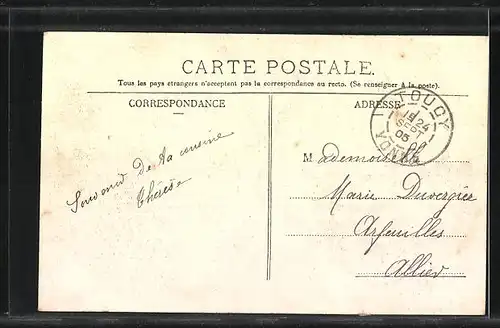 CARTE POSTALE.
Tous les pays étrangers n'acceptent pas la correspondance au recto. (Se renseigner à la poste).
CORRESPONDANCE
ADRESSE
TOUCY
24
SEPT
05
Souvenir de ta cousine
Thérèse
Mademoiselle
Marie Duvergier
Arfeuilles
Allier